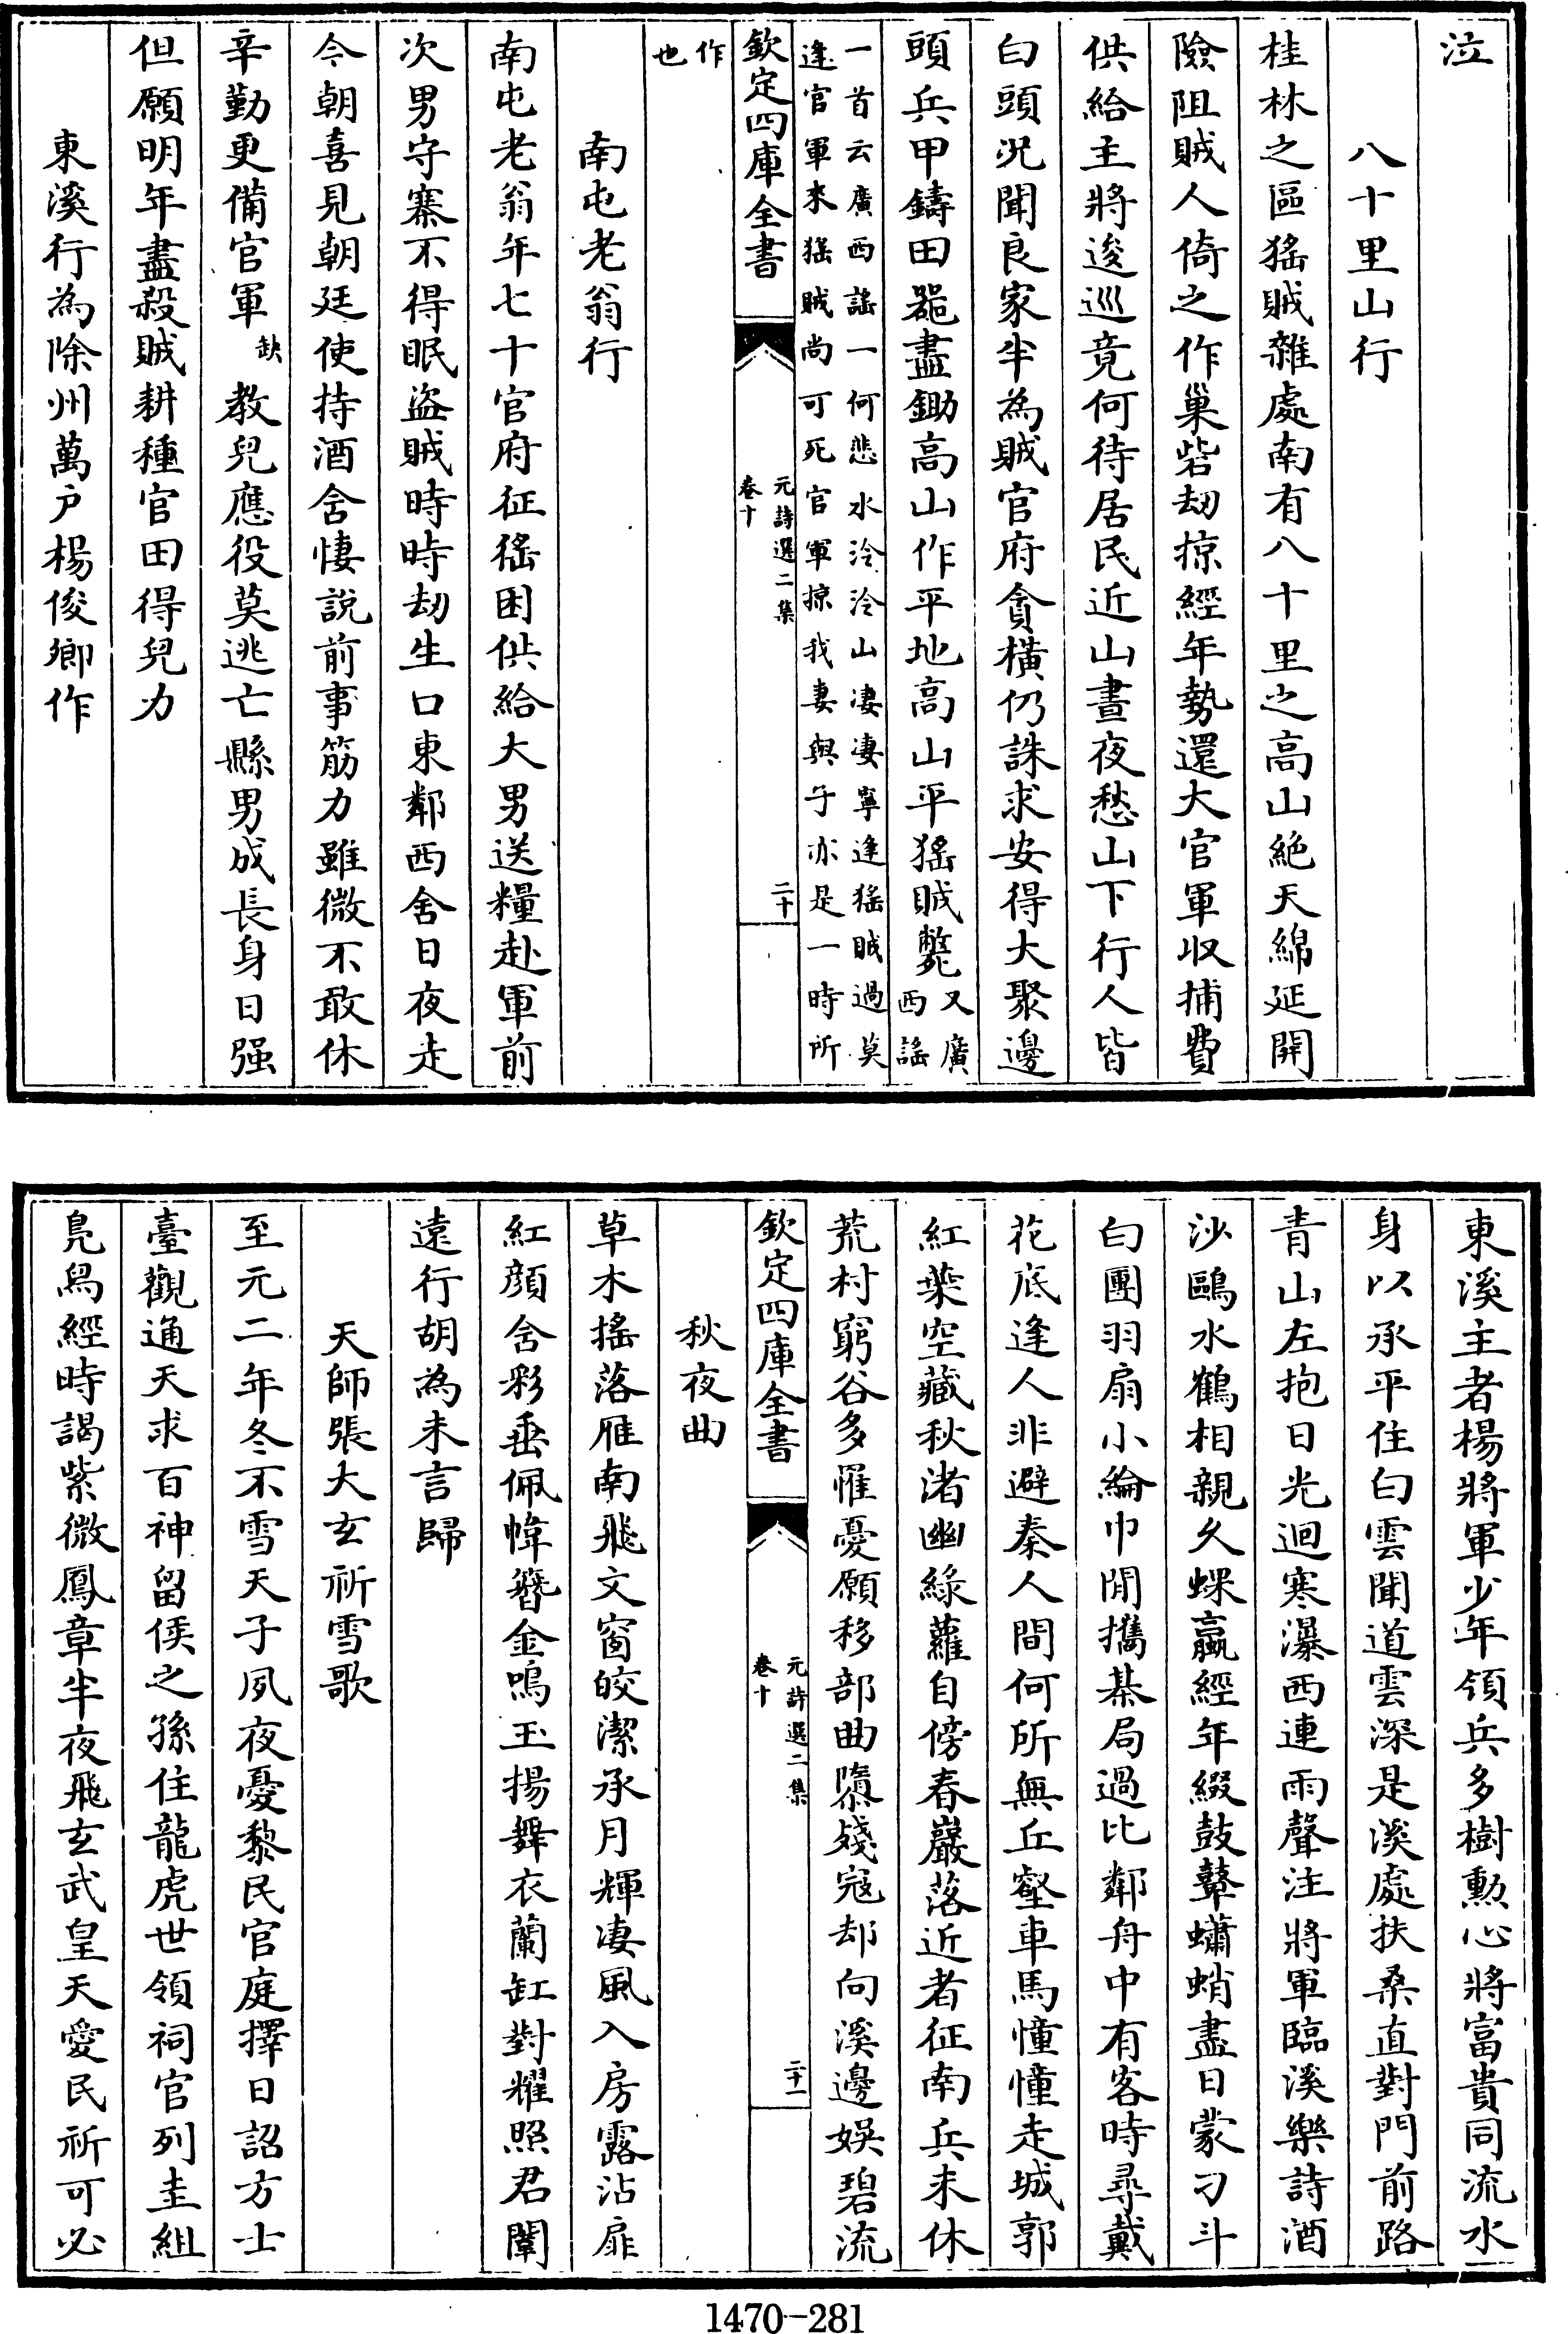 泣
八十里山行
桂林之區猺賊雜處南有八十里之高山絶天綿延開
險阻賊人倚之作巢砦刼掠經年勢還大官軍収捕費
供給主將逡巡竟何待居民近山晝夜愁山下行人皆
白頭況聞良家半為賊官府貪橫仍誅求安得大聚邊
頭兵甲鑄田器盡鋤髙山作平地髙山平猺賊斃又廣西謡
一首云廣西謡一何悲水泠泠山凄凄寧逢猺賊過莫
逢官軍來猺賊尚可死官軍掠我妻與子亦是一時所
欽定四庫全書
元詩選二集
卷十
二十
作
也
南屯老翁行
南屯老翁年七十官府征徭困供給大男送糧赴軍前
次男守寨不得眠盜賊時時刼生口東鄰西舍日夜走
今朝喜見朝廷使持酒含悽說前事筋力雖微不敢休
辛勤更備官軍缺教兒應役莫逃亡縣男成長身日强
但願明年盡殺賊耕種官田得兒力
東溪行為除州萬户楊俊卿作
東溪主者楊將軍少年領兵多樹勲心將富貴同流水
身以承平住白雲聞道雲深是溪處扶桑直對門前路
青山左抱日光迴寒瀑西連雨聲注將軍臨溪樂詩酒
沙鷗水鶴相親久蜾蠃經年綴鼓鼙蠨蛸盡日蒙刁斗
白團羽扇小綸巾閒攜棊局過比鄰舟中有客時尋戴
花底逢人非避秦人間何所無丘壑車馬憧憧走城郭
紅葉空藏秋渚幽綠蘿自傍春巖落近者征南兵未休
荒村窮谷多罹憂願移部曲隳殘寇却向溪邊娱碧流
欽定四庫全書
元詩選二集
卷十
二十一
秋夜曲
草木搖落雁南飛文窗皎潔承月輝凄風入房露沾扉
紅顔含彩垂佩幃簪金鳴玉揚舞衣蘭缸對耀照君闈
遠行胡為未言歸
天師張大玄祈雪歌
至元二年冬不雪天子夙夜憂黎民官庭擇日詔方士
臺觀通天求百神留侯之孫住龍虎世領祠官列圭組
鳬舄經時謁紫微鳳章半夜飛玄武皇天愛民祈可必
1470-281